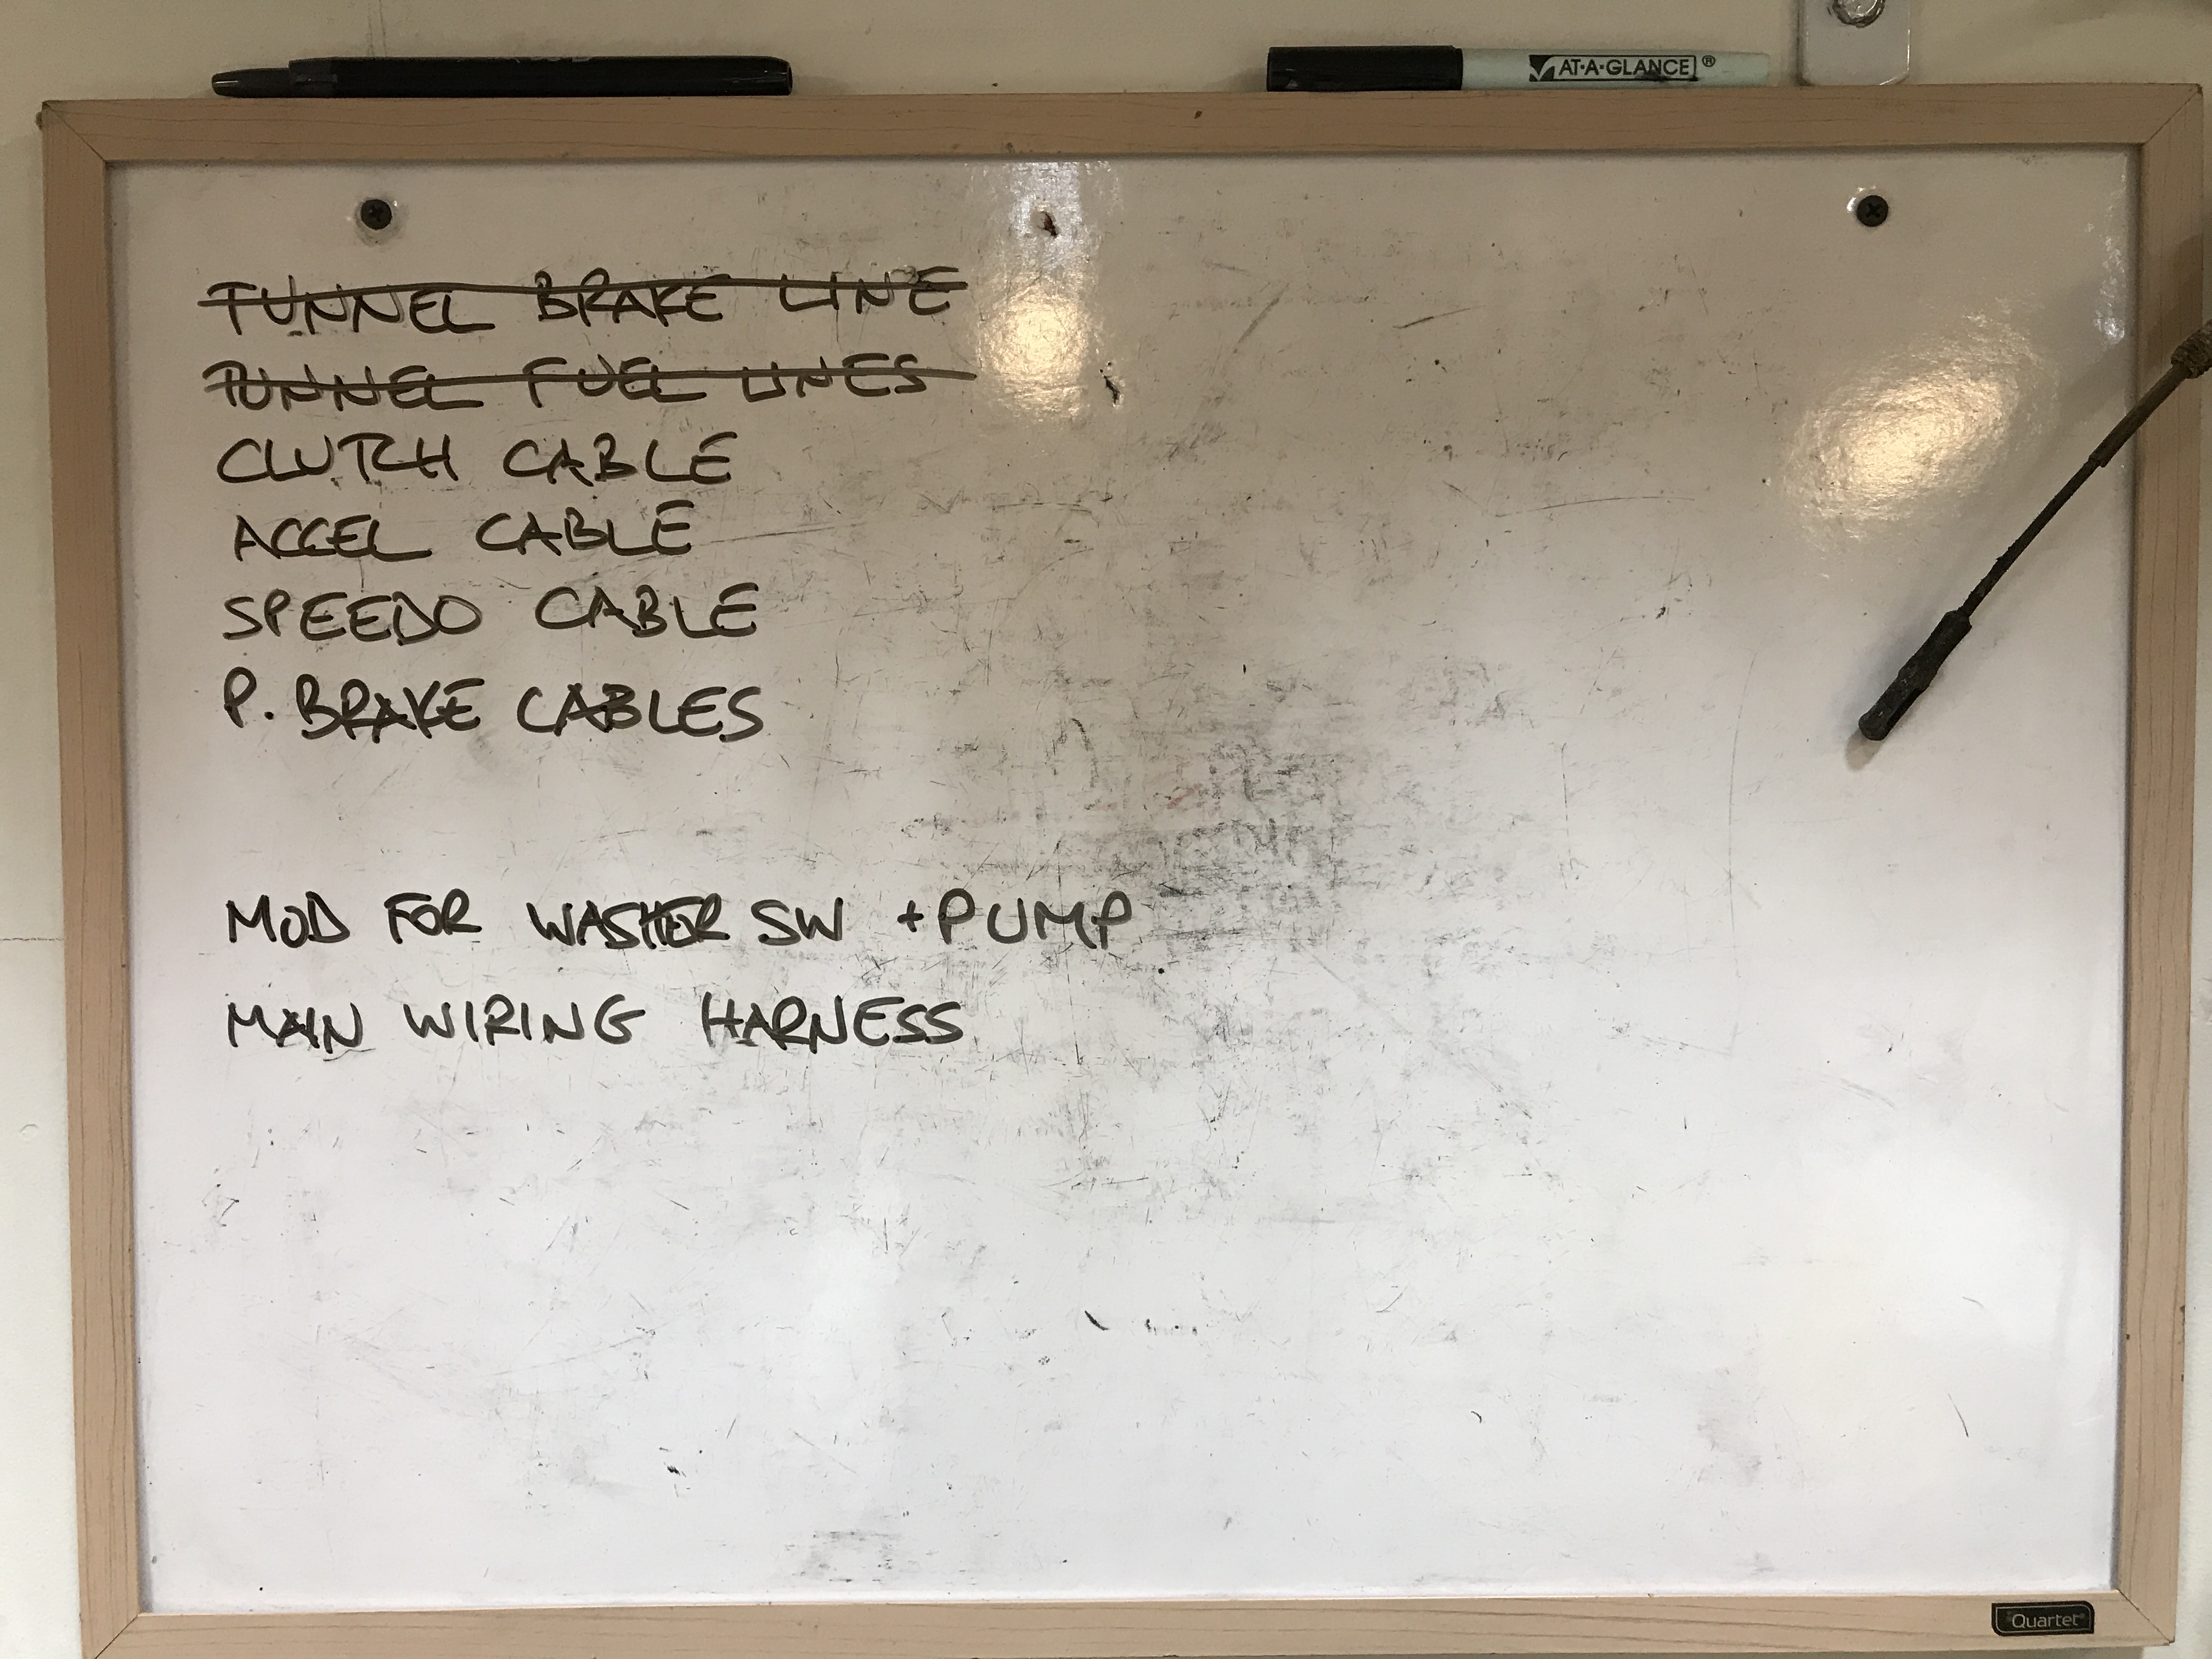 AT·A·GLANCE®
TUNNEL BRAKE LINE
TUNNEL FUEL LINES
CLUTCH CABLE
ACCEL CABLE
SPEEDO CABLE
P. BRAKE CABLES
MOD FOR WASHER SW + PUMP
MAIN WIRING HARNESS
Quartet